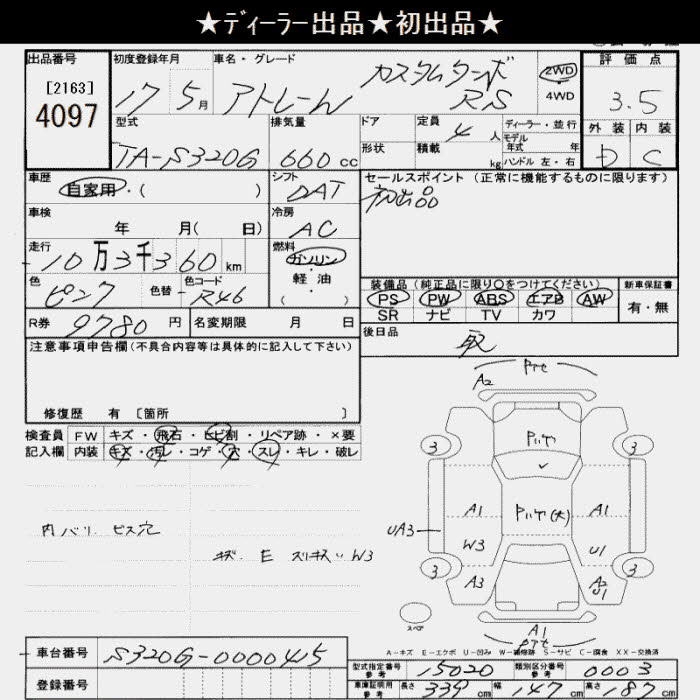 ★ディーラー出品★初出品★
出品番号
[2163]
4097
初度登録年月
17 5月
車名・グレード
アトレーW カスタムターボ RS
2WD
4WD
評価点
3.5
外装 内装
D C
型式
TA-S320G
排気量
660 cc
ドア
形状
定員
4 人
積載
kg
ディーラー・並行
モデル
年式 年
ハンドル 左・右
車歴
自家用・( )
シフト
DAT
セールスポイント (正常に機能するものに限ります)
初出品
車検
年 月( 日)
冷房
AC
走行
10万3千360 km
燃料
ガソリン
軽油
( ・ )
色
ピンク
色替
色コード
R46
装備品 (純正品に限り〇をつけてください)
PS PW ABS エアB AW
SR ナビ TV カワ
新車保証書
有・無
R券
9780 円
名変期限 月 日
後日品
取
注意事項申告欄(不具合内容等は具体的に記入して下さい)
修復歴 有 〔箇所 〕
検査員
記入欄
FW キズ・飛石・ヒビ割・リペア跡・×要
内装 キズ・汚レ・コゲ・穴・スレ・キレ・破レ
内バリ ビス穴
キズ. E スリキズ W3
A2
Pケ
3 3
Pいケ
A1 Pいケ(大) A1
UA3
W3 U1
3 3
A3 A2 U1
スペア
A1
Pケ
A-キズ E-エクボ U-凹み W-補修跡 S-サビ C-腐食 XX-交換済
車台番号
S320G-0000415
登録番号
型式指定番号
参考
15020
類別区分番号
参考
0003
車庫証明用
参考
長さ 339 cm 幅 147 cm 高さ 187 cm